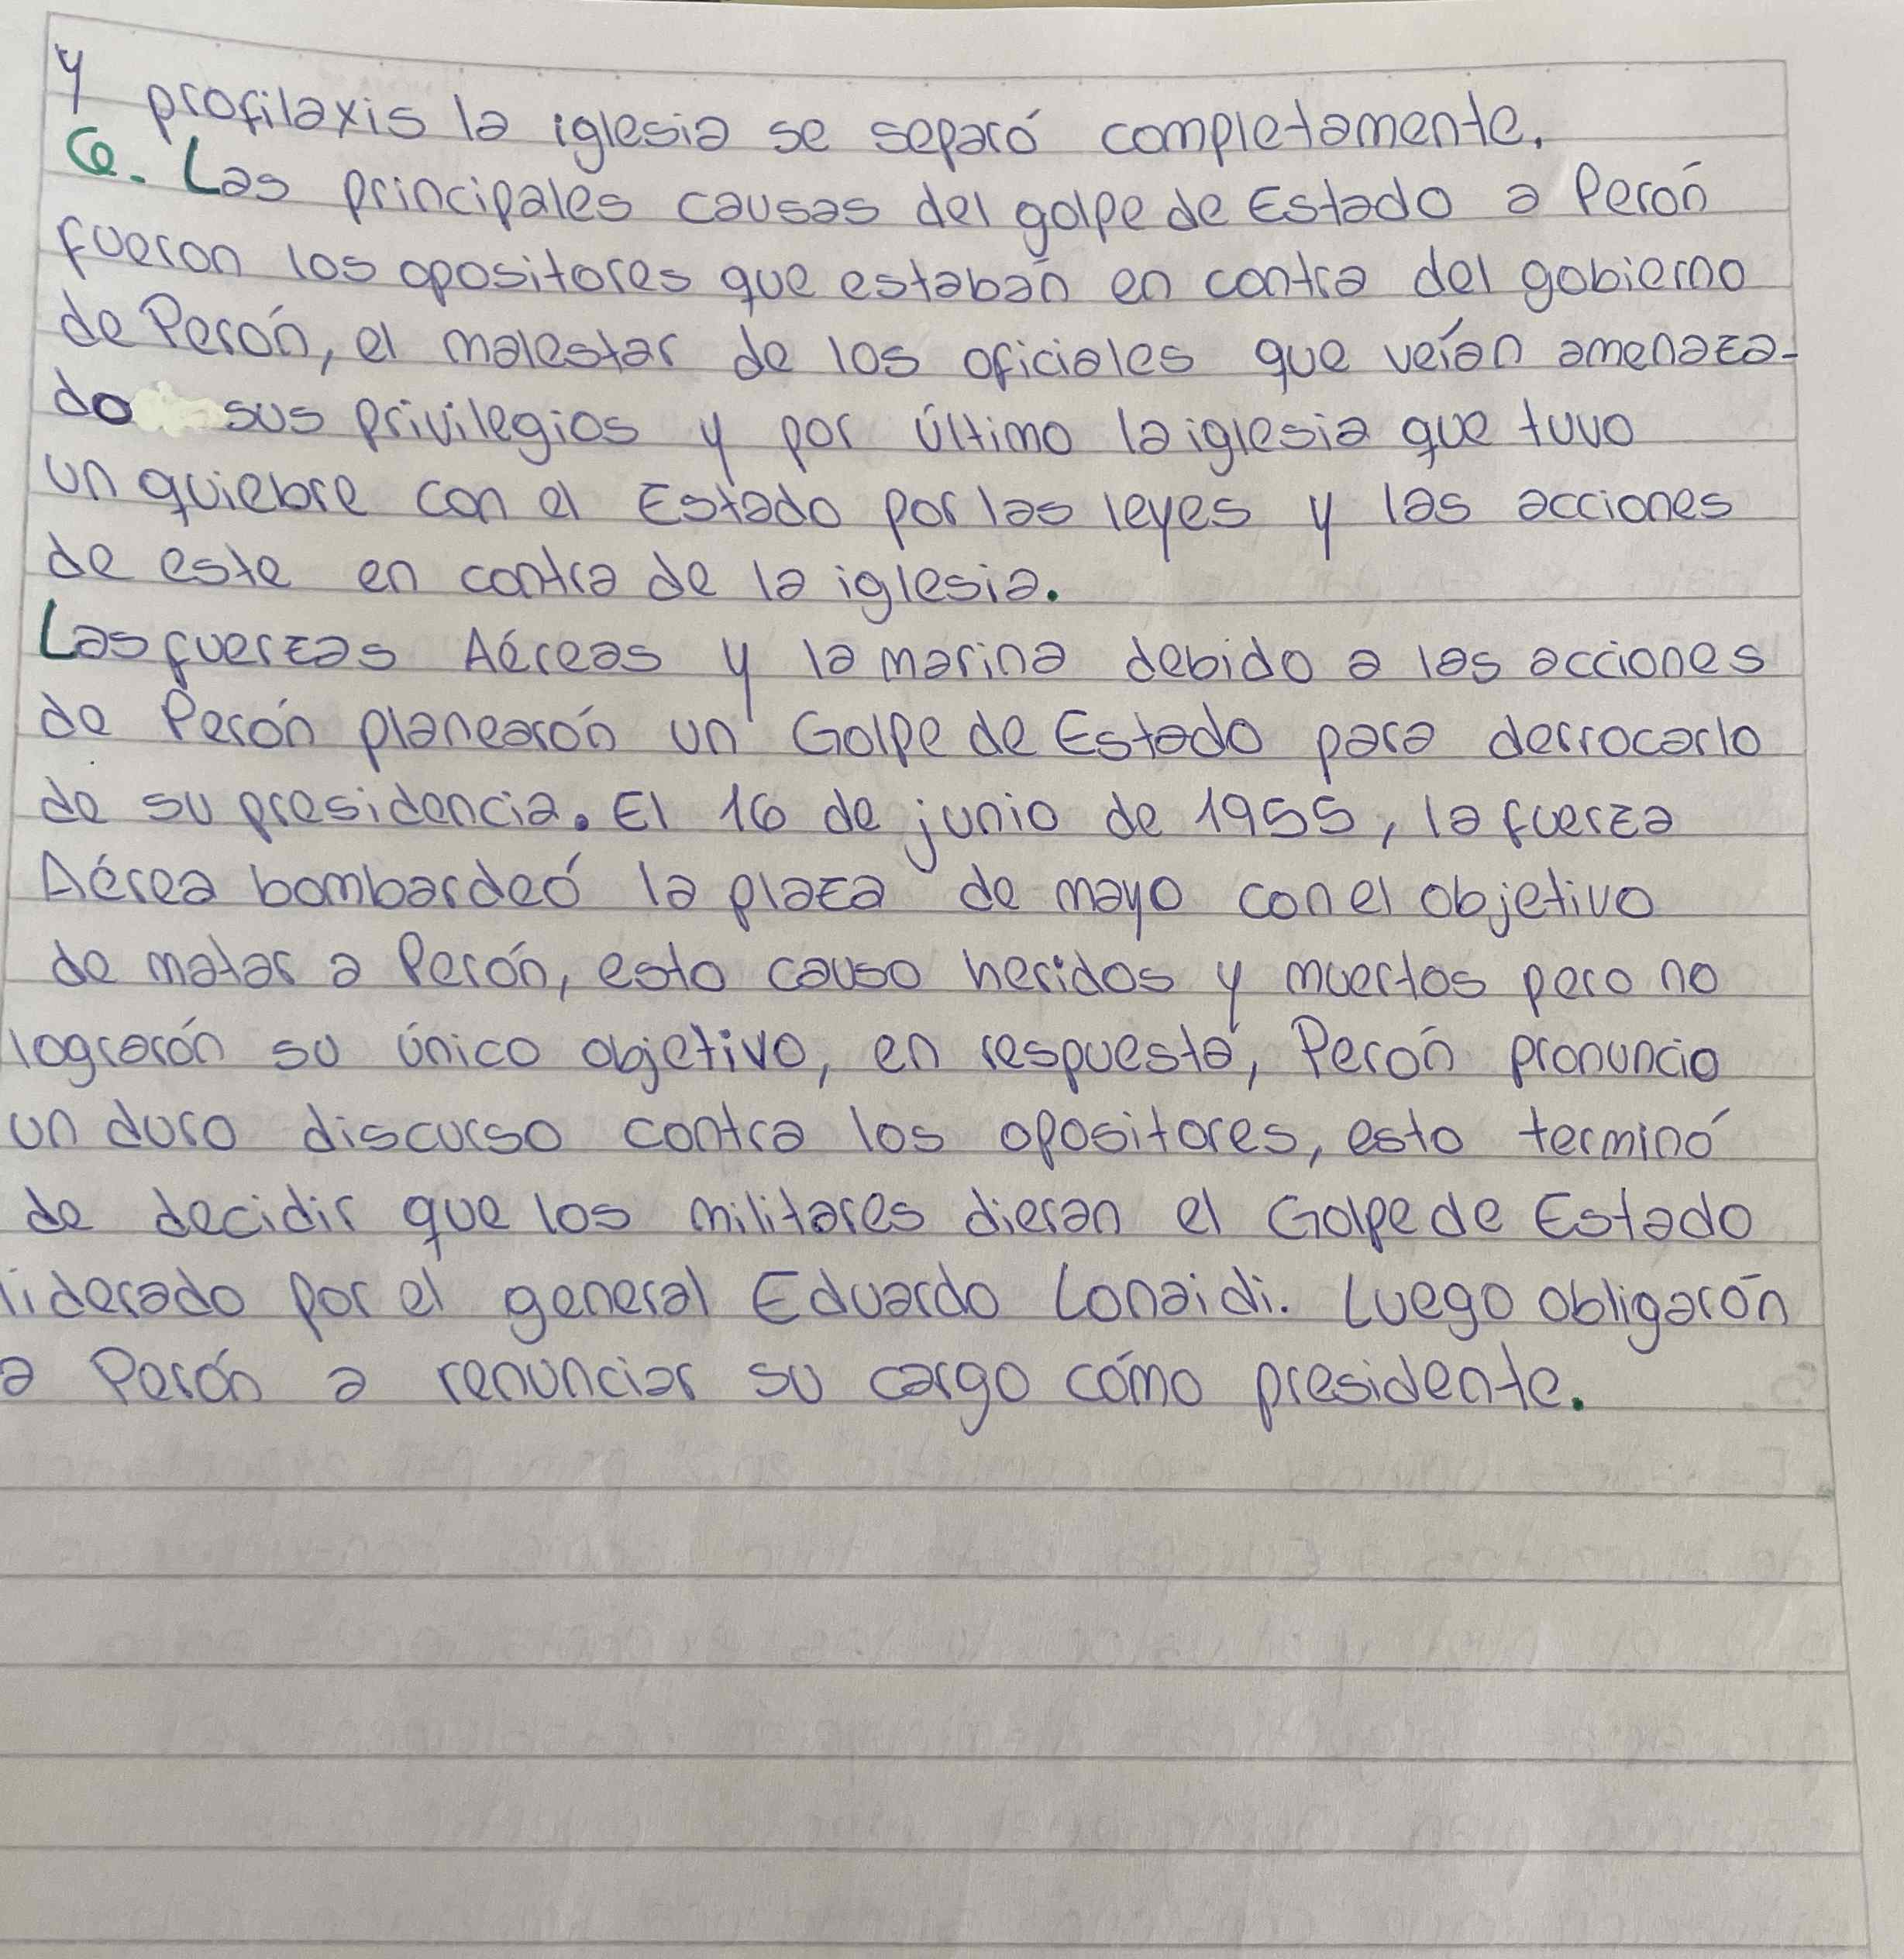 y profilaxis la iglesia se separó completamente.
6. Las principales causas del golpe de Estado a Perón
fueron los opositores que estabán en contra del gobierno
de Perón, el malestar de los oficiales que veían amenaza-
do sus privilegios y por último la iglesia que tuvo
un quiebre con el Estado por las leyes y las acciones
de este en contra de la iglesia.
Las fuerzas Aéreas y la marina debido a las acciones
de Perón planearón un Golpe de Estado para derrocarlo
de su presidencia. El 16 de junio de 1955, la fuerza
Aérea bombardeó la plaza de mayo con el objetivo
de matar a Perón, esto causo heridos y muertos pero no
lograrón su único objetivo, en respuesta, Perón pronuncio
un duro discurso contra los opositores, esto terminó
de decidir que los militares dieran el Golpe de Estado
liderado por el general Eduardo Lonaidi. Luego obligarón
a Perón a renunciar su cargo cómo presidente.